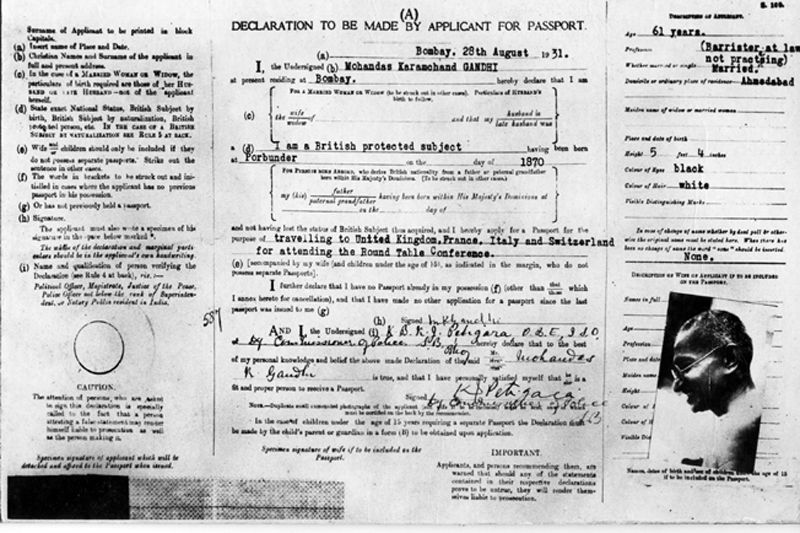 (A)
DECLARATION TO BE MADE BY APPLICANT FOR PASSPORT.
Surname of Applicant to be printed in block
Capitals.
(a) Insert name of Place and Date.
(b) Christian Names and Surname of the applicant in
full and present address.
(c) In the case of a MARRIED WOMAN OR WIDOW, the
particulars of birth required are those of her HUS-
BAND OR LATE HUSBAND—not of the applicant
herself.
(d) State exact National Status, British Subject by
birth, British Subject by naturalization, British
protected person, etc. IN THE CASE OF A BRITISH
SUBJECT BY NATURALIZATION SEE RULE 5 AT BACK.
(e) Wife and children should only be included if they
do not possess separate passports. Strike out the
sentence in other cases.
(f) The words in brackets to be struck out and ini-
tialled in cases where the applicant has no previous
passport in his possession.
(g) Or has not previously held a passport.
(h) Signature.
The applicant must also write a specimen of his
signature in the space below marked *.
The whole of the declaration and marginal parts
enters should be in the applicant's own handwriting.
(i) Name and qualification of person verifying the
Declaration (see Rule 4 at back), viz.:—
Political Officer, Magistrate, Justice of the Peace,
Police Officer not below the rank of Superinten-
dent, or Notary Public resident in India.
CAUTION.
The attention of persons, who are asked
to sign this declaration is specially
called to the fact that a person
attesting a false statement may render
himself liable to prosecution as well
as the person making it.
Specimen signature of applicant which will be
detached and affixed to the Passport when issued.
(a) Bombay, 28th August 1931.
I, the Undersigned (b) Mohandas Karamchand GANDHI
at present residing at Bombay. hereby declare that I am
FOR A MARRIED WOMAN OR WIDOW (to be struck out in other cases). Particulars of HUSBAND'S
birth to follow.
(c) the wife widow of and that my husband is late husband was
a (d) I am a British protected subject having been born
at Porbunder on the day of 1870
FOR PERSONS BORN ABROAD, who derive British nationality from a father or paternal grandfather
born within His Majesty's Dominions. (To be struck out in other cases.)
my (his) father paternal grandfather having been born within His Majesty's Dominions at
on the day of
and not having lost the status of British Subject thus acquired, and I hereby apply for a Passport for the
purpose of travelling to United Kingdom, France, Italy and Switzerland
for attending the Round Table Conference.
(e) [accompanied by my wife (and children under the age of 15), as indicated in the margin, who do not
possess separate Passports].
I further declare that I have no Passport already in my possession (f) (other than that those which
I annex hereto for cancellation), and that I have made no other application for a passport since the last
passport was issued to me (g)
(h) Signed MKGandhi
587
AND I, the Undersigned (i) K. B. K. J. Petigara O.B.E, I.S.O.
Dy Commissioner of Police S.B. hereby declare that to the best
of my personal knowledge and belief the above made Declaration of the said Mohandas
K. Gandhi is true, and that I have personally satisfied myself that he is a
fit and proper person to receive a Passport.
Signed K J Petigara
Dy Commissioner of Police
SB
NOTE.—Duplicate small unmounted photographs of the applicant
must be certified on the back by the recommender.
In the case of children under the age of 15 years requiring a separate Passport the Declaration must
be made by the child's parent or guardian in a form (B) to be obtained upon application.
Specimen signature of wife if to be included on the
Passport.
IMPORTANT.
Applicants, and persons recommending them, are
warned that should any of the statements
contained in their respective declarations
prove to be untrue, they will render them-
selves liable to prosecution.
DESCRIPTION OF APPLICANT.
Age 61 years.
Profession (Barrister at law
not practising)
Whether married or single Married.
Domicile or ordinary place of residence Ahmedabad
Maiden name of widow or married woman
Place and date of birth
Height 5 feet 4 inches
Colour of Eyes black
Colour of Hair white
Visible Distinguishing Marks
In case of change of name whether by deed poll or other-
wise the original name must be stated here. When there has
been no change of name the word "none" should be inserted.
None.
DESCRIPTION OF WIFE OF APPLICANT IF TO BE INCLUDED
ON THE PASSPORT.
Names in full
Age
Profession
Place and date
Maiden name
Height
Colour of
Colour of H
Visible Dis
Names, dates of birth and sex of children under the age of 15
if to be included on the Passport.